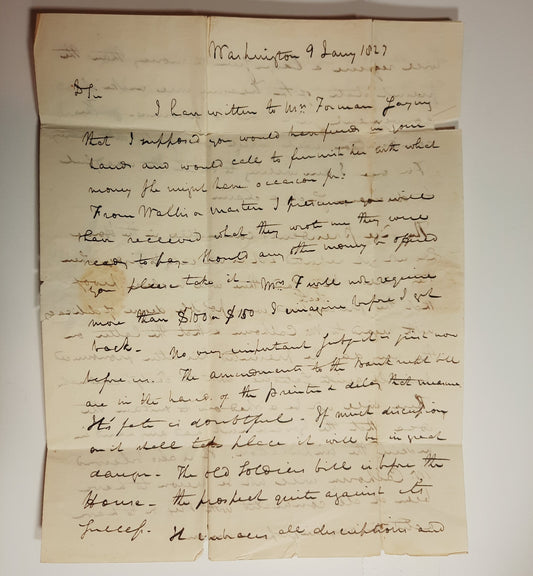 Washington 9 Jany 1827
D Sir
I have written to Mrs Forman saying
that I supposed you would have funds in your
hands and would call to furnish her with what
money she might have occasion for.
From Wallis or Masten I presume you will
have received what they wrote me they were
ready to pay. Should any other money be offered
you please take it. Mrs F will not require
more than $100 or $150 I imagine before I get
back. No very important subject is just now
before us. The amendments to the bank
are in the hands of the printer a delay that
Its fate is doubtful. If much discussion
on it shall take place it will be in great
danger. The old Soldiers bill is before the
House. the prospect quite against its
success. It embraces all descriptions and